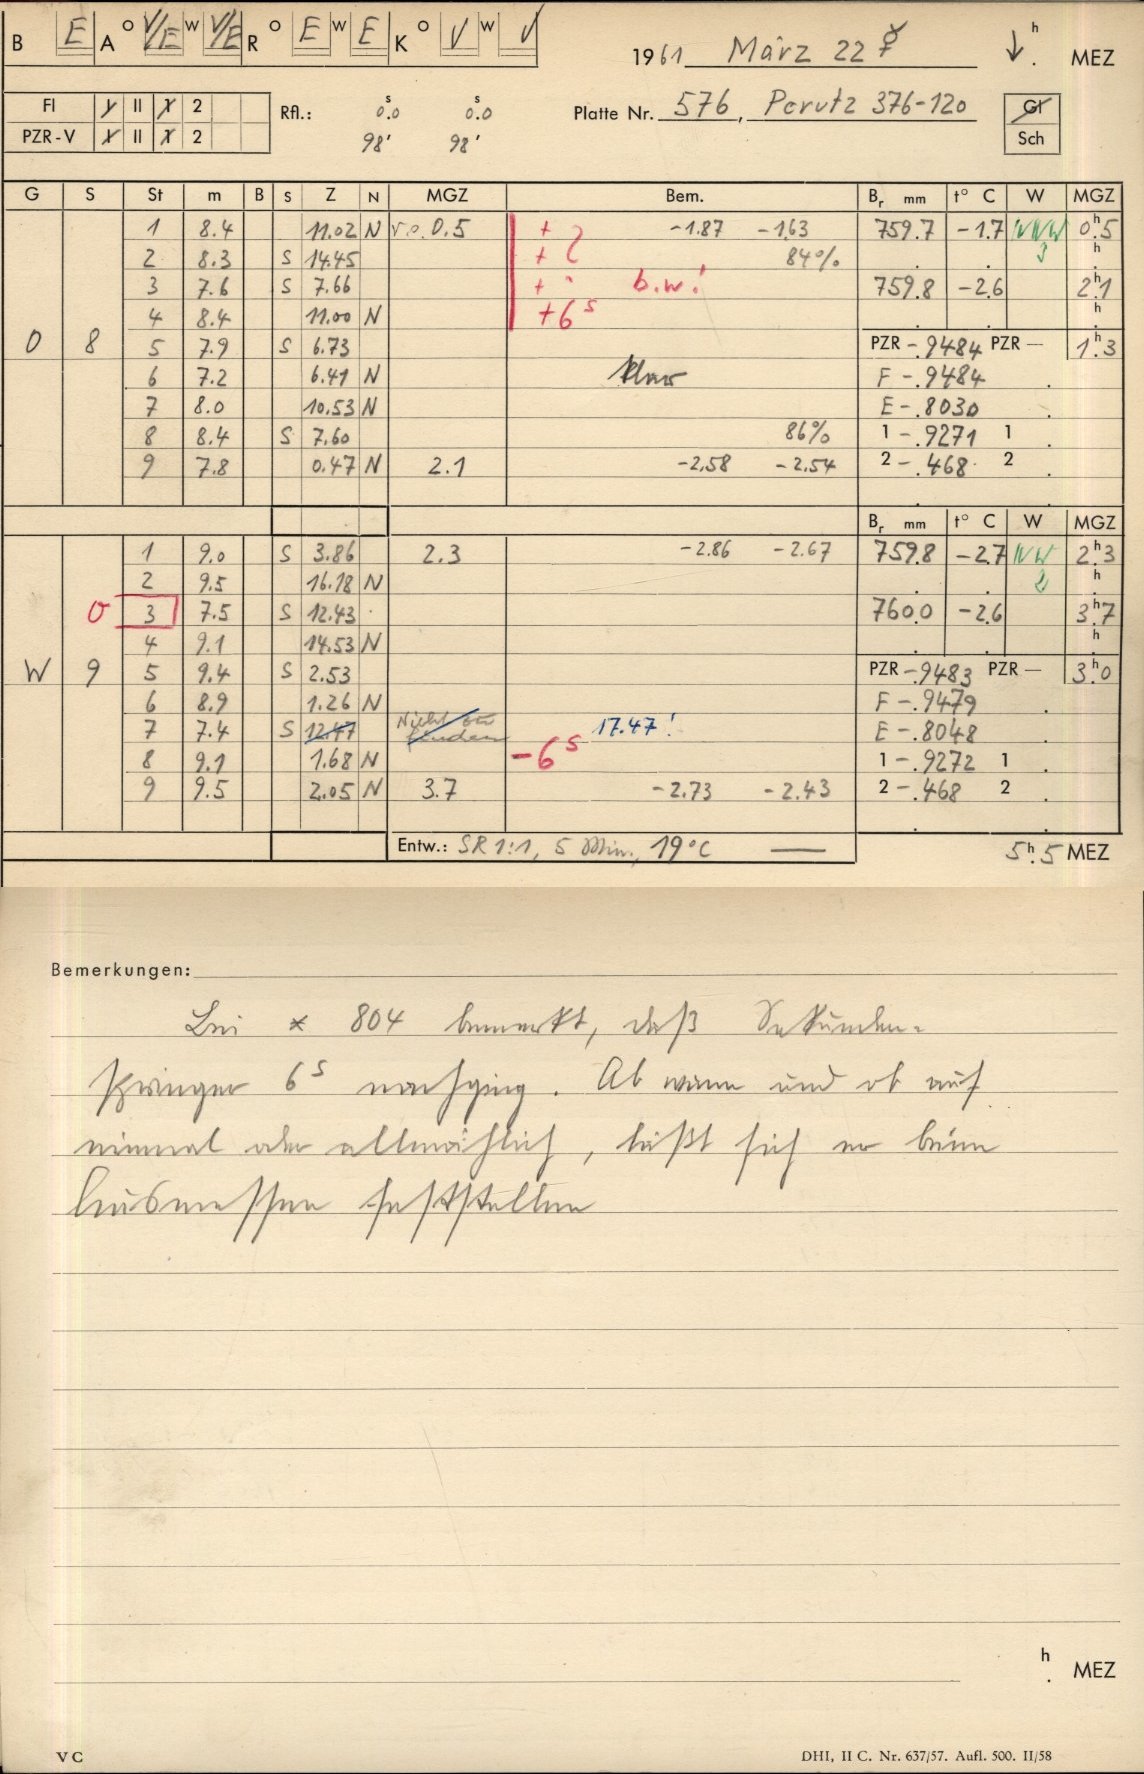 B E A o V/E w V/E R o E w E K o V w V
1961 März 22 ☿ ↓ h . MEZ
Fl I II 1 2
PZR-V I II 1 2
Rfl.: 0.s0 0.s0
98' 98'
Platte Nr. 576, Perutz 376-120
Gl
Sch
G S St m B S Z N MGZ Bem. Br mm t° C W MGZ
1 8.4 11.02 N v.o. 0.5 + ? -1.87 -1.63 759.7 -1.7 NNW 0h.5
2 8.3 S 14.45 + 84% 3 h
3 7.6 S 7.66 + b.w! 759.8 -2.6 2h.1
4 8.4 11.00 N +6s h
O 8 5 7.9 S 6.73 PZR -.9484 PZR — 1h.3
6 7.2 6.41 N klar F -.9484
7 8.0 10.53 N E -.8030
8 8.4 S 7.60 86% 1 -.9271 1
9 7.8 0.47 N 2.1 -2.58 -2.54 2 -.468 2
Br mm t° C W MGZ
1 9.0 S 3.86 2.3 -2.86 -2.67 759.8 -2.7 NW 2h.3
2 9.5 16.18 N 2 h
O 3 7.5 S 12.43 760.0 -2.6 3h.7
4 9.1 14.53 N h
W 9 5 9.4 S 2.53 PZR -.9483 PZR — 3h.0
6 8.9 1.26 N F -.9479
7 7.4 S 12.47 Nicht zu finden 17.47! E -.8048
8 9.1 1.68 N -6s 1 -.9272 1
9 9.5 2.05 N 3.7 -2.73 -2.43 2 -.468 2
Entw.: SR 1:1, 5 Min., 19°C — 5h.5 MEZ
Bemerkungen:
Bei * 804 bemerkt, daß Sekunden-
springer 6s nachging. Ab wann und ob auf
einmal oder allmählich, läßt sich er beim
Ausmessen feststellen
h . MEZ
VC
DHI, II C. Nr. 637/57. Aufl. 500. II/58